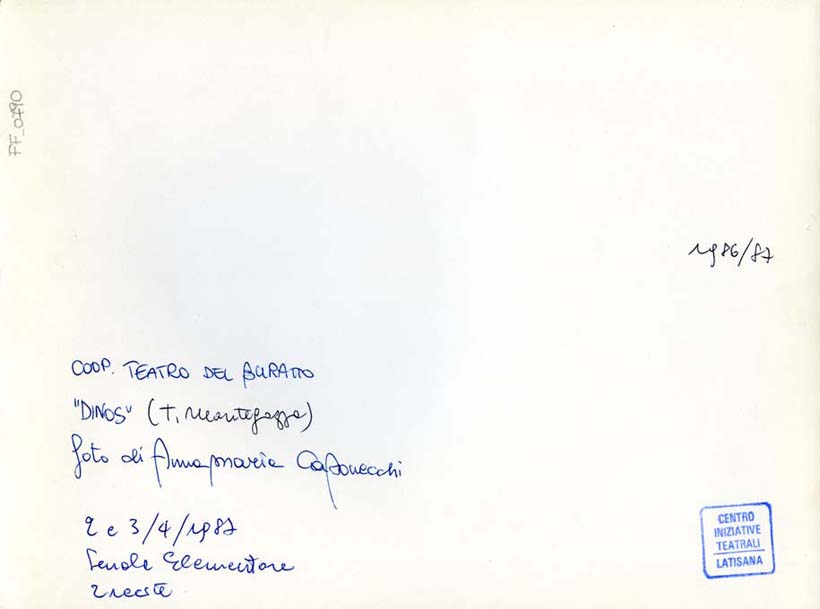 FF_0490
1986/87
COOP. TEATRO DEL BURATTO
"DINOS" (T. Mantegazza)
foto di Annamaria Caponecchi
2 e 3/4/1987
Scuola Elementare
CENTRO
INIZIATIVE
TEATRALI
LATISANA